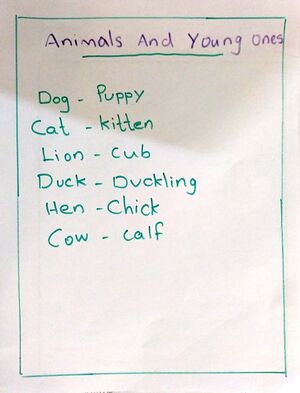 Animals And Young Ones
Dog - Puppy
Cat - Kitten
Lion - Cub
Duck - Duckling
Hen - Chick
Cow - Calf